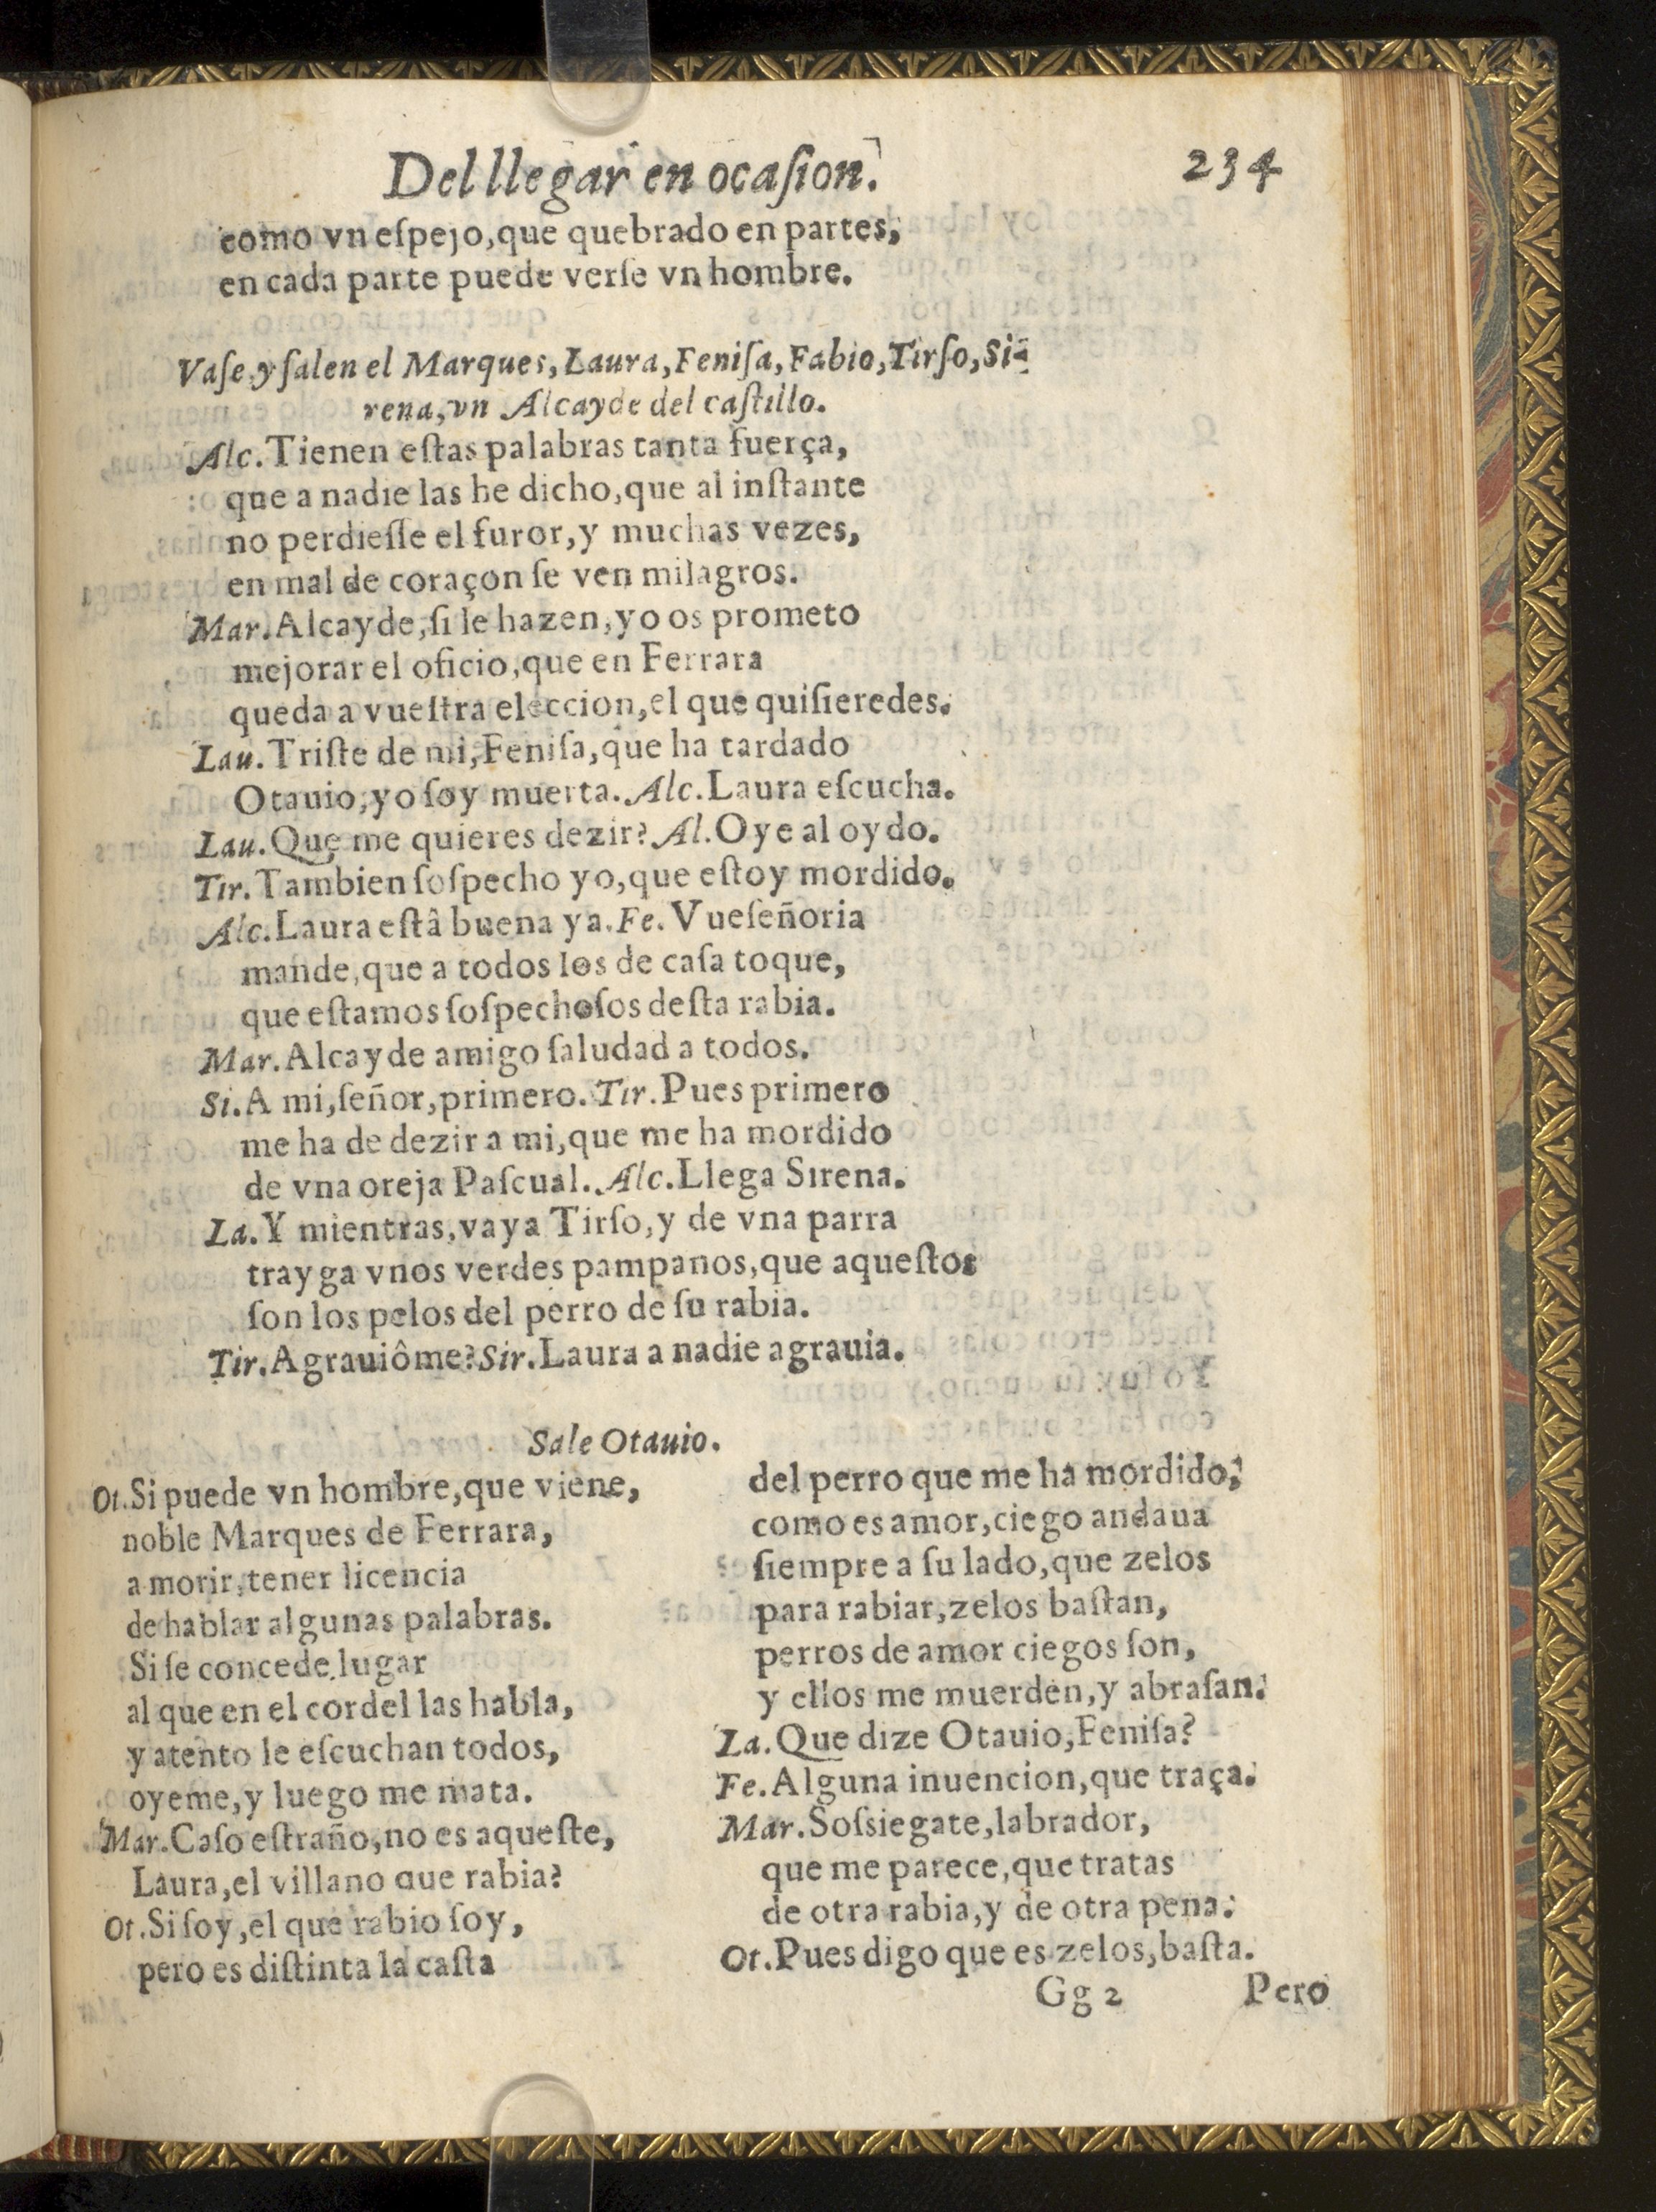 Del llegar en ocaſion.
234
como vn eſpejo, que quebrado en partes,
en cada parte puede verſe vn hombre.
Vaſe y ſalen el Marques, Laura, Feniſa, Fabio, Tirſo, Si-
rena, vn Alcayde del caſtillo.
Alc. Tienen eſtas palabras tanta fuerça,
que a nadie las he dicho, que al inſtante
no perdieſſe el furor, y muchas vezes,
en mal de coraçon ſe ven milagros.
Mar. Alcayde, ſi le hazen, yo os prometo
mejorar el oficio, que en Ferrara
queda a vueſtra eleccion, el que quiſieredes.
Lau. Triſte de mi, Feniſa, que ha tardado
Otauio, yo ſoy muerta. Alc. Laura eſcucha.
Lau. Que me quieres dezir? Al. Oye al oydo.
Tir. Tambien ſoſpecho yo, que eſtoy mordido.
Alc. Laura eſtâ buena ya. Fe. Vueſeñoria
mande, que a todos los de caſa toque,
que eſtamos ſoſpechoſos deſta rabia.
Mar. Alcayde amigo ſaludad a todos.
Si. A mi, ſeñor, primero. Tir. Pues primero
me ha de dezir a mi, que me ha mordido
de vna oreja Paſcual. Alc. Llega Sirena.
La. Y mientras, vaya Tirſo, y de vna parra
trayga vnos verdes pampanos, que aqueſtos
ſon los pelos del perro de ſu rabia.
Tir. Agrauiôme? Sir. Laura a nadie agrauia.
Sale Otauio.
Ot. Si puede vn hombre, que viene,
noble Marques de Ferrara,
a morir, tener licencia
de hablar algunas palabras.
Si ſe concede lugar
al que en el cordel las habla,
y atento le eſcuchan todos,
oyeme, y luego me mata.
Mar. Caſo eſtraño, no es aqueſte,
Laura, el villano que rabia?
Ot. Si ſoy, el que rabio ſoy,
pero es diſtinta la caſta
del perro que me ha mordido,
como es amor, ciego andaua
ſiempre a ſu lado, que zelos
para rabiar, zelos baſtan,
perros de amor ciegos ſon,
y ellos me muerden, y abraſan.
La. Que dize Otauio, Feniſa?
Fe. Alguna inuencion, que traça.
Mar. Soſsiegate, labrador,
que me parece, que tratas
de otra rabia, y de otra pena.
Ot. Pues digo que es zelos, baſta.
Gg 2 Pero